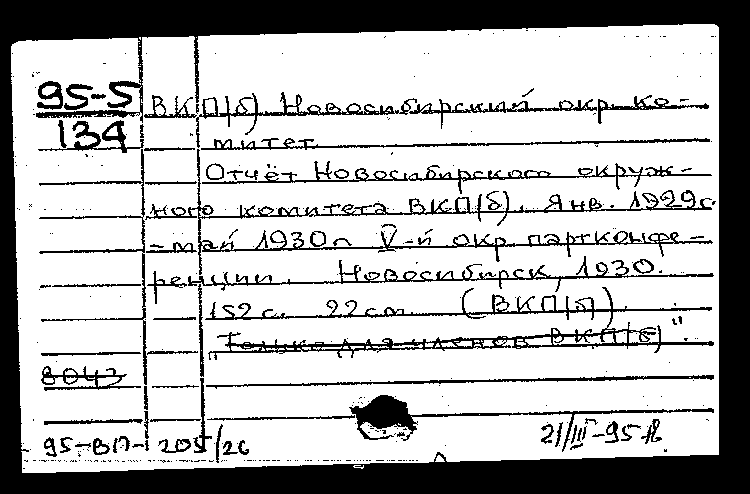 95-5
134
ВКП(б) Новосибирский окр. ко-
митет
Отчёт Новосибирского окруж-
ного комитета ВКП(б). Янв. 1929г
-май 1930г V-й окр партконфе-
ренции. Новосибирск, 1930.
152 с. 22 см (ВКП(б)).
"Только для членов ВКП(б)".
8043
95-ВП- 205/26
21/III-95